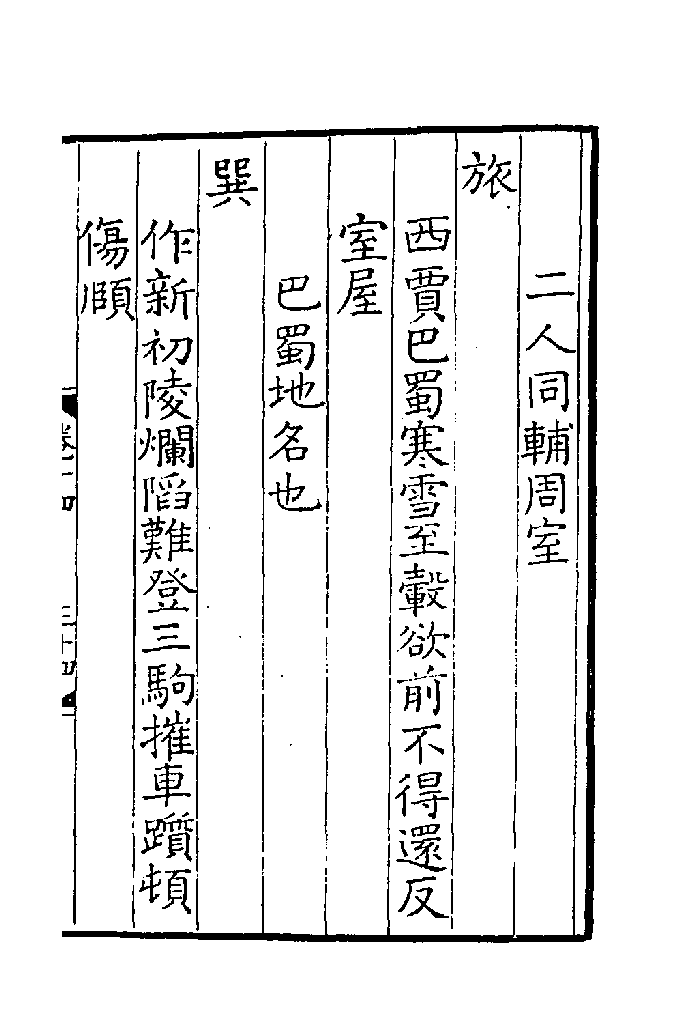 二人同輔周室
旅
西賈巴蜀寒雪至轂欲前不得還反
室屋
巴蜀地名也
巽
作新初陵爛陷難登三駒摧車躓頓
傷頤
卷十四
三十四